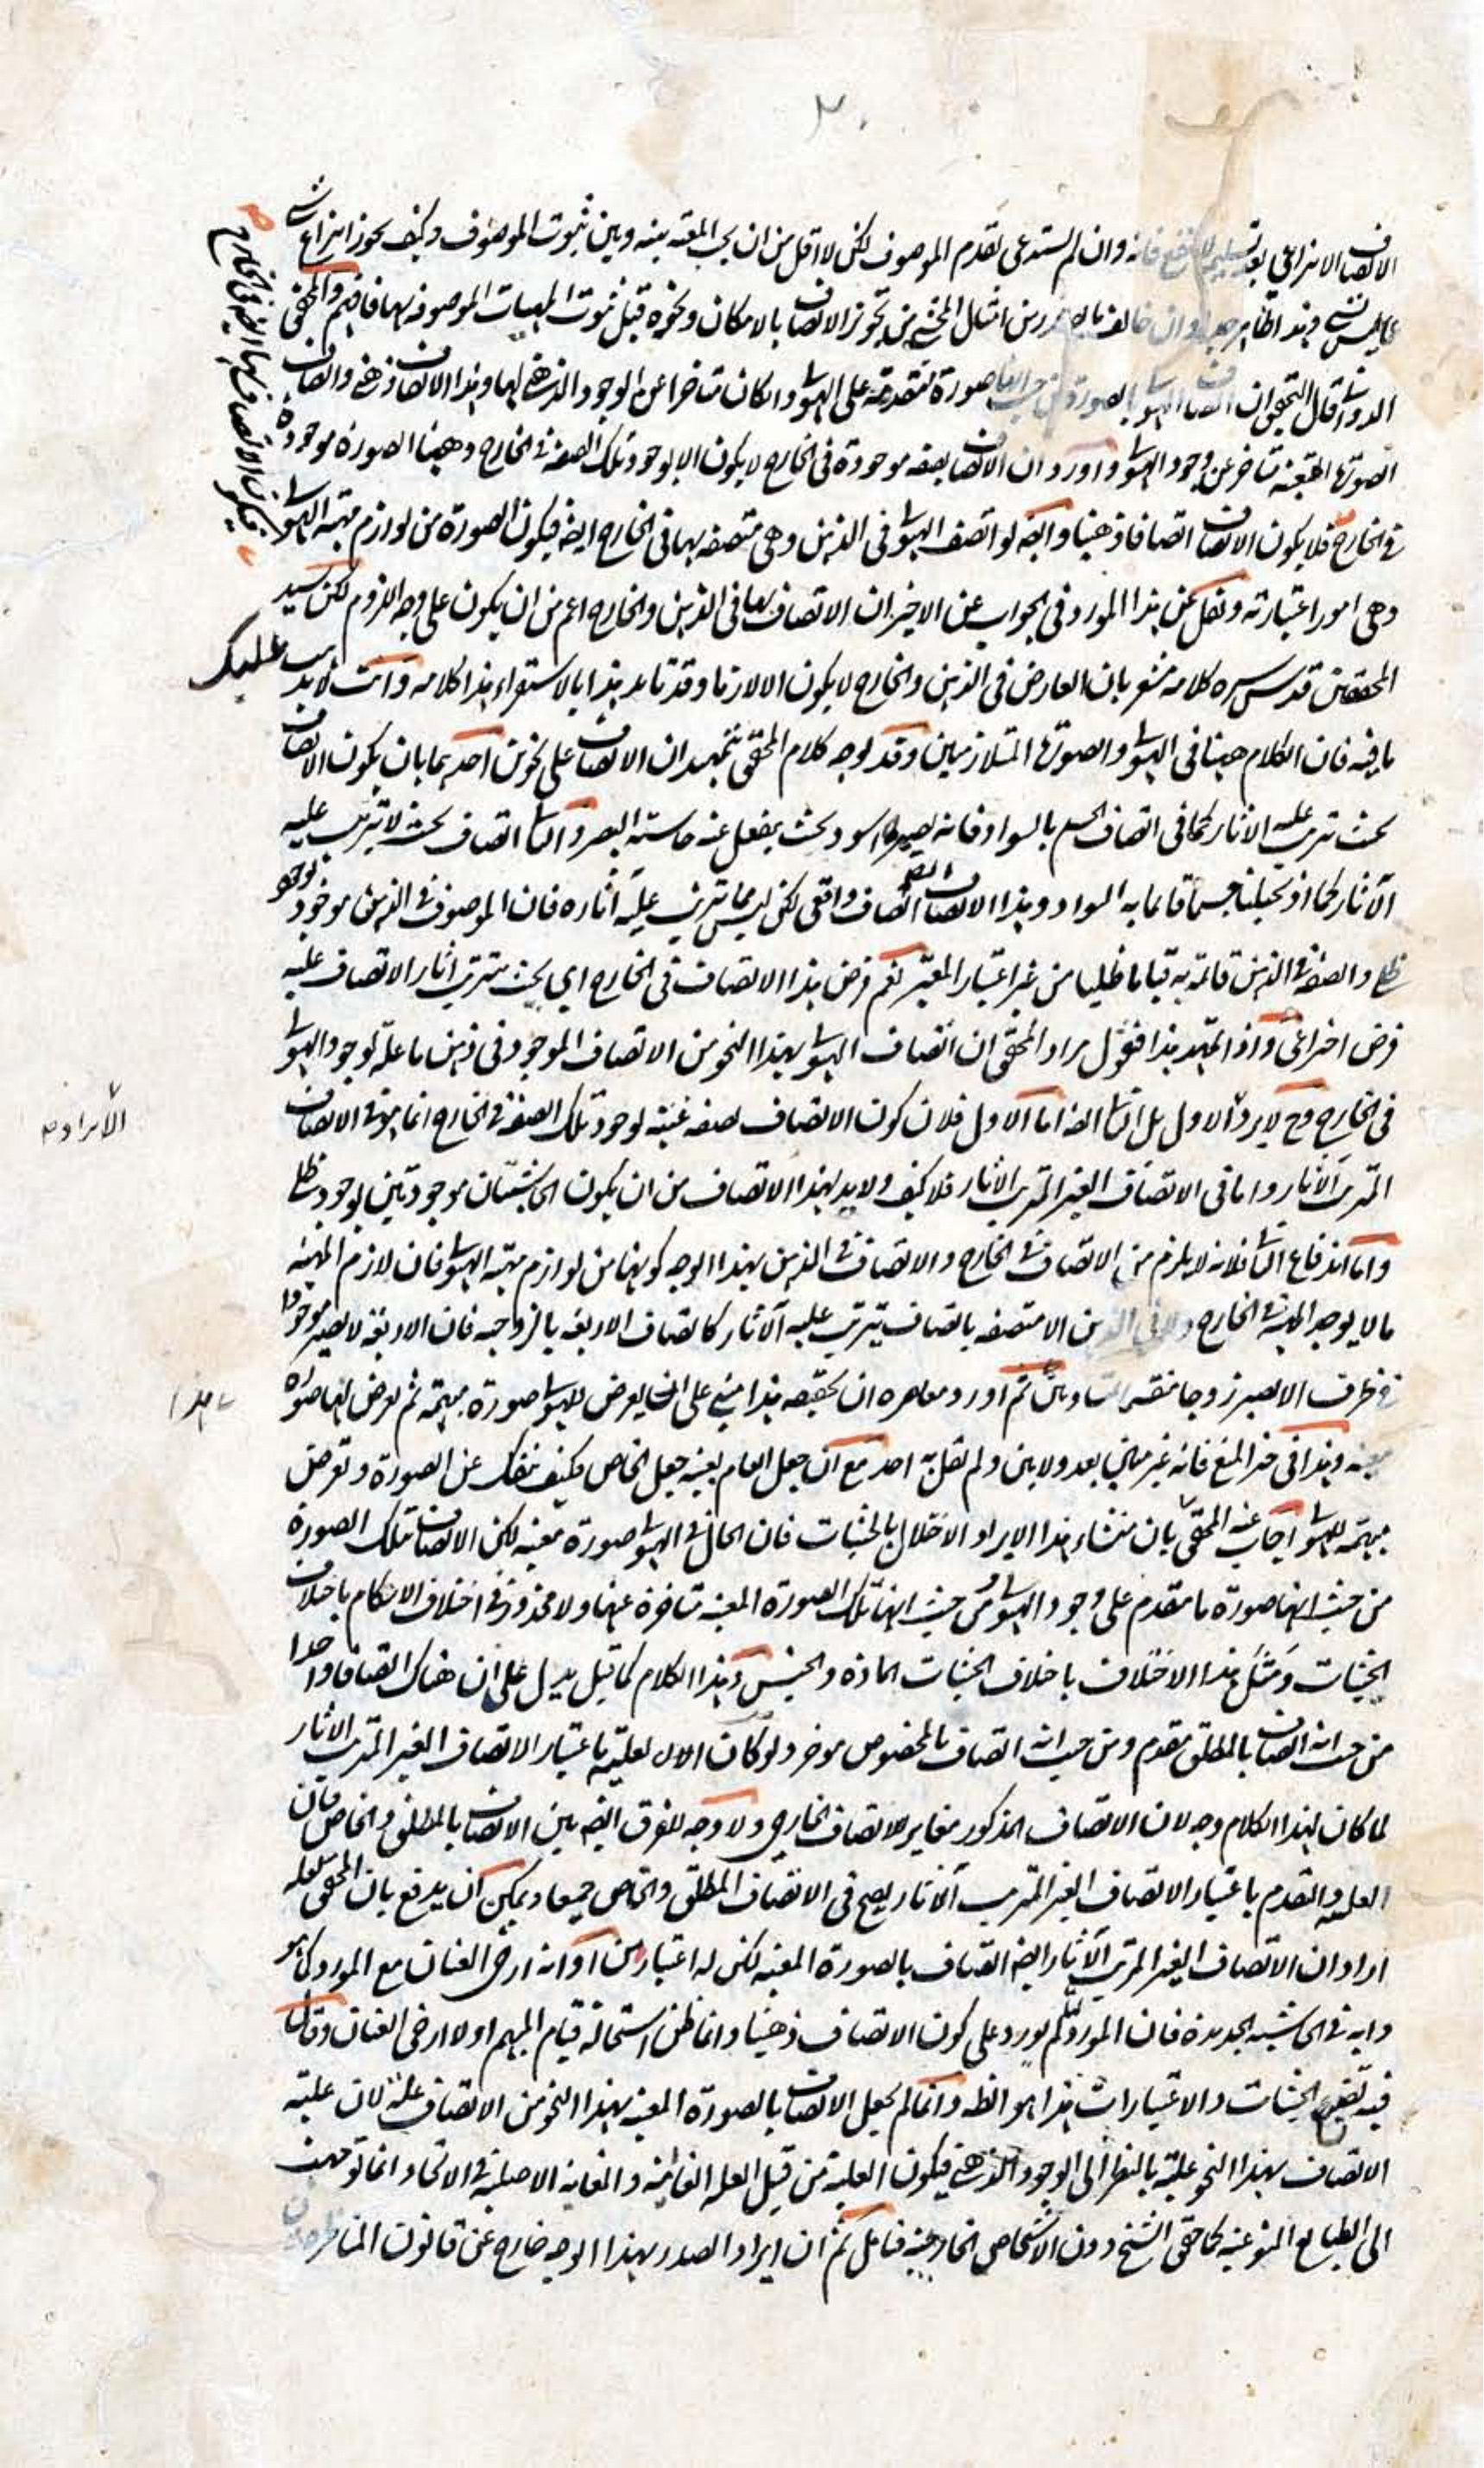 ٢٠
الاتصاف الانتزاعي بعد تسليمه لا ينفع فانه وان لم يستدعى تقدم الموصوف لكن لا اقل من ان يجب المعية بينه وبين ثبوت الموصوف وكيف يجوز انتزاع شئ
عما ليس بشئ وهذا ظاهر جدا وان خالف امثال المحشى من تجويز الاتصاف بالامكان ونحوه قبل ثبوت المهيات الموصوفة بها فافهم والمحقق
الدوانى قال التحقيق ان اتصاف الهيولى بالصورة من حيث انها صورة متقدمة على الهيولى وان كان متاخرا عن الوجود الذهنى لها وهذا الاتصاف ذهنى واتصاف
الصورة المعينة متاخر عن وجود الهيولى واورد ان الاتصاف بصفة موجودة فى الخارج لا يكون الا بوجود تلك الصفة فى الخارج وههنا الصورة موجودة
فى الخارج فلا يكون الاتصاف اتصافا ذهنيا وايضا لو اتصف الهيولى فى الذهن وهى متصفة بها فى الخارج ايضا فيكون الصورة من لوازم مهية الهيولى
فيكون الاتصاف بها ايضا فى الخارج
وهى امور اعتبارية ونقل عن هذا المورد فى الجواب عن الاخير ان الاتصاف بها فى الذهن والخارج اعم من ان يكون على وجه اللزوم لكن سيد
المحققين قدس سره كلامه مشعر بان العارض فى الذهن والخارج لا يكون الا لازما وقد تايد هذا بالاستقراء هذا كلامه وانت لا يذهب عليك
ما فيه فان الكلام ههنا فى الهيولى والصورة المتلازمين وقد يوجه كلام المحقق بتمهيد ان الاتصاف على نحوين احدهما بان يكون الاتصاف
بحيث يترتب عليه الاثار كما فى اتصاف الجسم بالسواد فانه يصير اسود بحيث ينفعل عنه حاسة البصر والثانى اتصاف بحيث لا يترتب عليه
الآثار كما اذ تخيلنا جسما قائما به السواد وهذا الاتصاف ايضا اتصاف واقعى لكن ليس مما يترتب عليه آثاره فان الموصوف فى الذهن موجود بوجود
ظلى والصفة فى الذهن قائمة به قياما ظليا من غير اعتبار المعتبر نعم فرض هذا الاتصاف فى الخارج اي بحيث يترتب اثار الاتصاف عليه
فرض اختراعى واذ تمهد هذا فنقول مراد المحقق ان اتصاف الهيولى بهذا النحو من الاتصاف الموجود فى ذهن ما علة لوجود الهيولى
فى الخارج وح لا يرد الاول بل الثانى ايضا اما الاول فلان كون الاتصاف بصفة عينية لوجود تلك الصفة فى الخارج انما هو فى الاتصاف
الايراد
المترتب الآثار واما فى الاتصاف الغير المترتب الاثار فلا كيف ولا بد لهذا الاتصاف من ان يكون الحاشيتان موجودتين بوجود ظلى
واما اندفاع الثانى فلانه لا يلزم من الاتصاف فى الخارج والاتصاف فى الذهن بهذا الوجه كونها من لوازم مهية الهيولى فان لازم المهية
ما لا يوجد المهية فى الخارج ولا فى الذهن الا متصفة باتصاف يترتب عليه الآثار كاتصاف الاربعة بالزوجية فان الاربعة لا يصير موجودا
فى ظرف الا يصير زوجا منقسما بمتساويين ثم اورد معاصره ان تحقيقه هذا مبنى على انه يعرض للهيولى صورة مبهمة ثم يعرض لها صورة
معينة وهذا فى حيز المنع فانه غير مبين بعد ولا بين ولم يقل به احد مع ان جعل العام بعينه جعل الخاص فكيف ينفك عن الصورة ويعرض
مبهمة للهيولى اجاب عنه المحقق بان منشاء هذا الايراد الاخلال بالحيثيات فان الحال فى الهيولى صورة معينة لكن الاتصاف بتلك الصورة
من حيث انها صورة ما مقدم على وجود الهيولى ومن حيث انها تلك الصورة المعينة متاخرة عنها ولا محذور فى اختلاف الاحكام باختلاف
الحيثيات ومثل هذا الاختلاف باختلاف الحيثيات المادة والجنس وهذا الكلام كما قيل يدل على ان هناك اتصافا واحدا
من حيث انه اتصاف بالمطلق مقدم ومن حيث انه اتصاف بالمخصوص موخر ولو كان الامر لعلية باعتبار الاتصاف الغير المترتب الاثار
لما كان لهذا الكلام وجه لان الاتصاف المذكور مغاير للاتصاف الخارجى ولا وجه للفرق ايضا بين الاتصاف بالمطلق والخاص فان
العلية والتقدم باعتبار الاتصاف الغير المترتب الآثار يصح فى الاتصاف المطلق والخاص جميعا ويمكن ان يدفع بان المحقق لعله
اراد ان الاتصاف الغير المترتب الآثار ايضا اتصاف بالصورة المعينة لكن له اعتبارين او انه ارخى العنان مع المورد كما هو
دابه فى الحاشية الجديدة فان المورد لم يورد على كون الاتصاف ذهنيا وانما ظن استحالة قيام المبهم اولا ارخى العنان وقال
فيه تضييع الحيثيات والاعتبارات هذا هو الظ وانما لم يجعل الاتصاف بالصورة المعينة بهذا النحو من الاتصاف علة لان علية
الاتصاف بهذا النحو علية بالنظر الى الوجود الذهنى فيكون العلية من قبيل العلة الغائية والغاية الاصلية فى الايجاد انما توجهت
الى الطبايع النوعية كما حقق الشيخ دون الاشخاص الخارجية فتامل ثم ان ايراد الصدر بهذا الوجه خارج عن قانون المناظرة